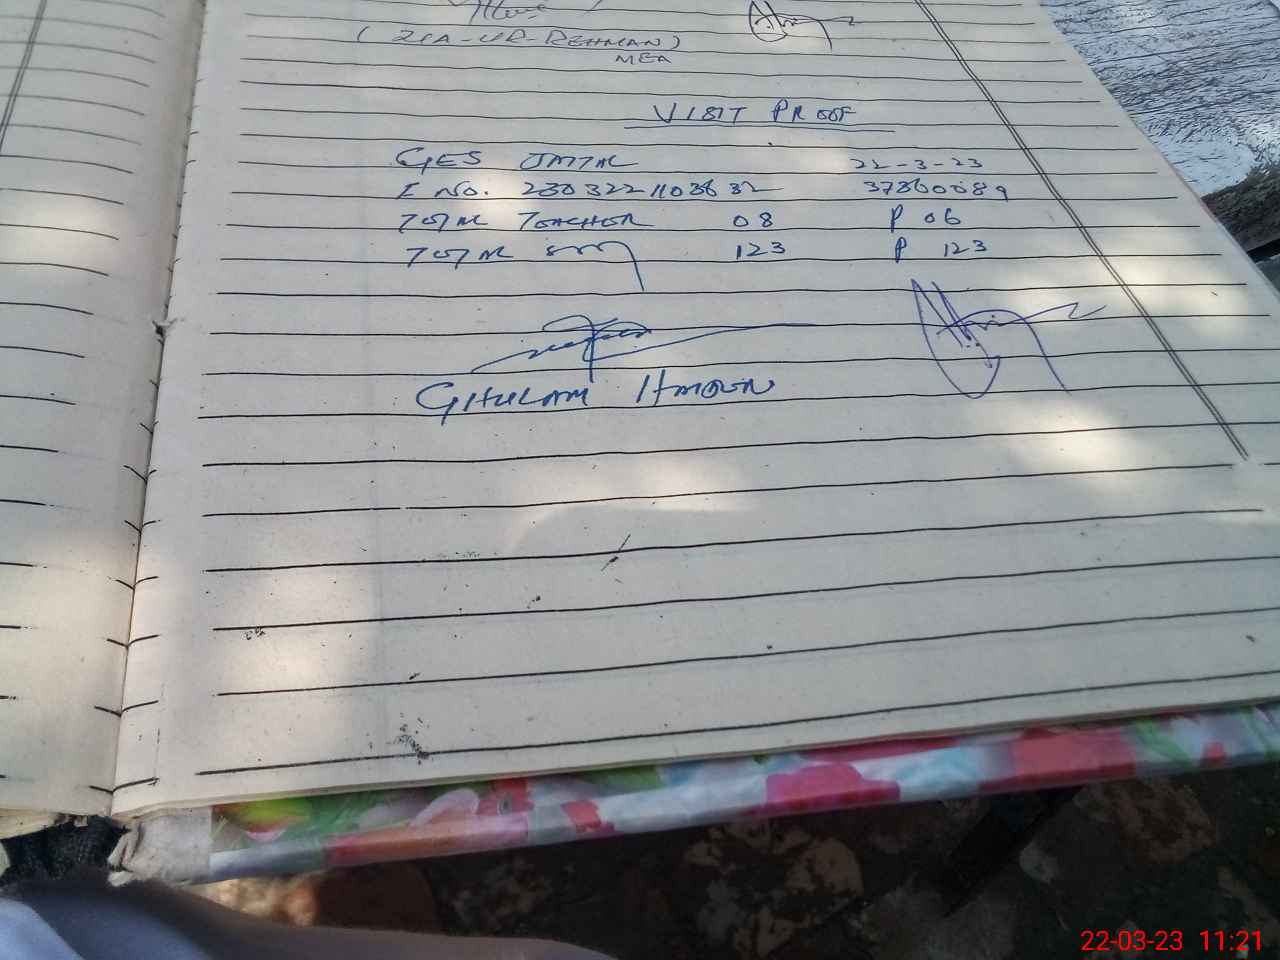 ( ZIA-UR-REHMAN )
MEA
VISIT PROOF
GES JATTAL 22-3-23
I No. 2303221103632 37360089
TOTAL TEACHER 08 P 06
TOTAL 123 P 123
GHULAM HAROON
22-03-23 11:21